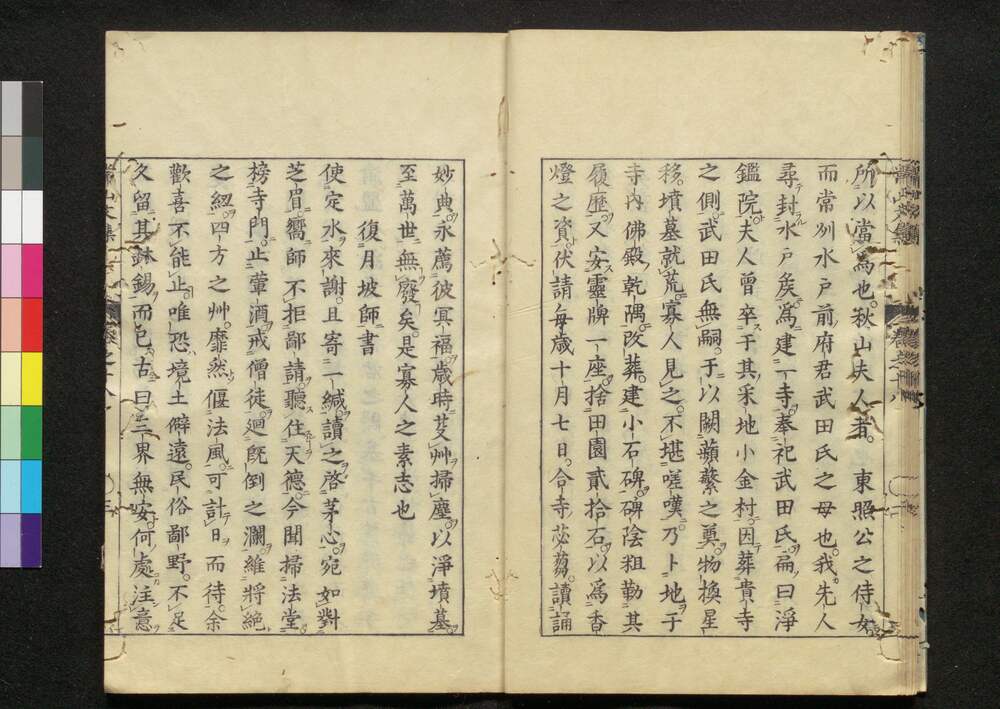 所以當爲也秋山夫人者 東照公之侍女
而常刕水戸前府君武田氏之母也我先人
尋封水戸矦爲建一寺奉祀武田氏扁曰淨
鑑院夫人曾卒于其采地小金村因葬貴寺
之側武田氏無嗣于以闕蘋蘩之奠物換星
移墳墓就荒寡人見之不堪嗟嘆乃卜地于
寺內佛殿乾隅改葬建小石碑碑陰粗勒其
履歷又安靈牌一座捨田園貳拾石以爲香
燈之資伏請每歲十月七日合寺苾蒭讀誦
妙典永薦彼冥福歲時芟艸掃塵以淨墳墓
至萬世無廢矣是寡人之素志也
復月坡師書
使定水來謝且寄一緘讀之啓茅心宛如對
芝眉嚮師不拒鄙請聽住天德今聞掃法堂
榜寺門止葷酒戒僧徒廻旣倒之瀾維將絶
之紐四方之艸靡然偃法風可計日而待余
歡喜不能止唯恐境土僻遠民俗鄙野不足
久留其鉢錫而已古曰三界無安何處注意